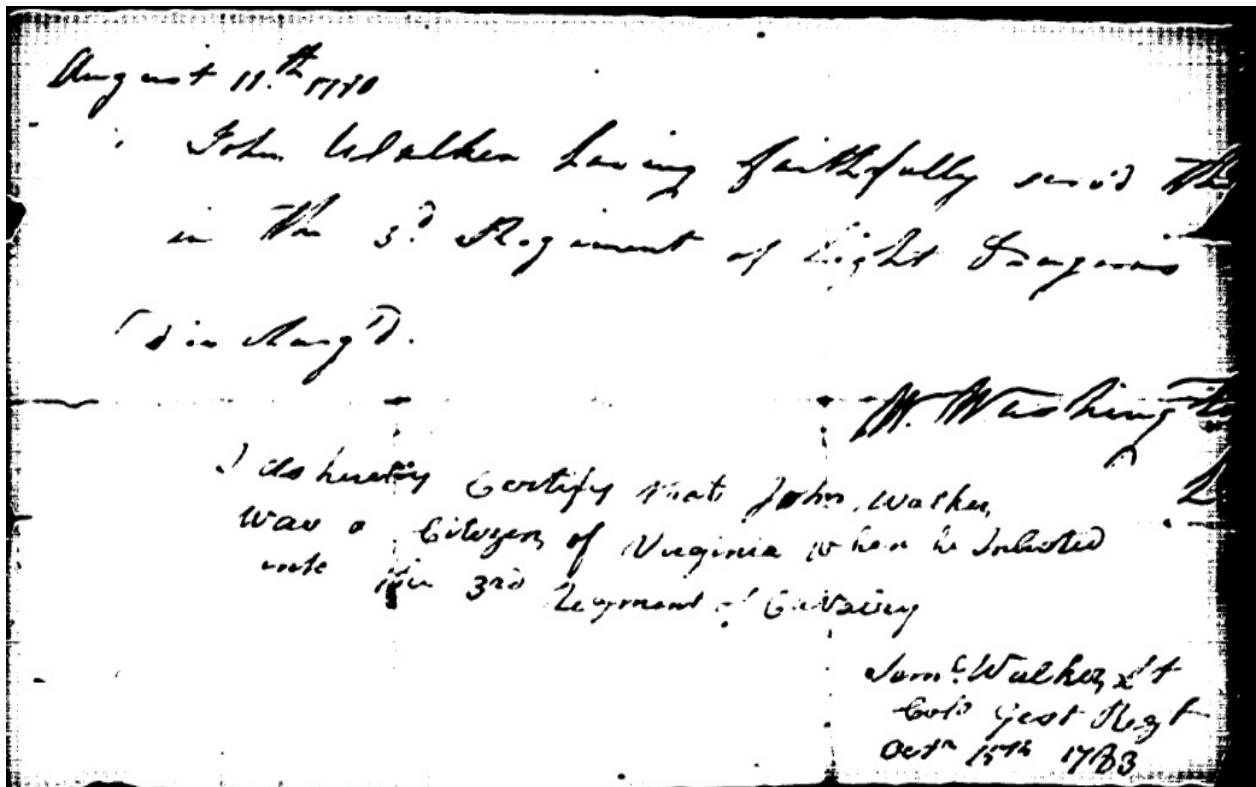 August 11.th 1780
John Walker having faithfully serv'd the
in the 3d. Regiment of Light Dragoons
discharg'd.
W. Washington
I do hereby Certify that John Walker,
was a Citizen of Virginia when he Inlisted
into the 3rd Regiment of Cavalry
Walker, Lt
Colo Gist Regt
Octr 15th 1783